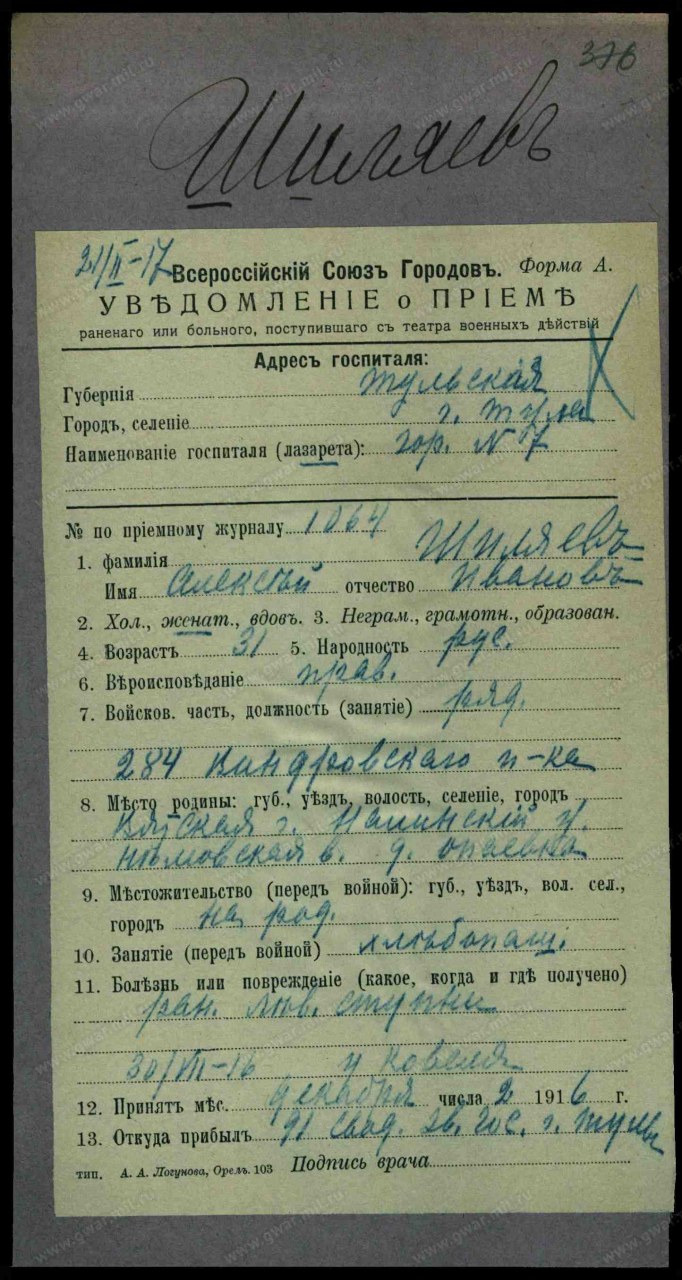 376
Шиляевъ
21/II-17
Всероссійскій Союзъ Городовъ. Форма А.
УВѢДОМЛЕНІЕ о ПРІЕМѢ
раненаго или больного, поступившаго съ театра военныхъ дѣйствій
Адресъ госпиталя:
Губернія тульская
Городъ, селеніе г. тула
Наименованіе госпиталя (лазарета): гор. N 7
№ по пріемному журналу 1064
1. фамилія Шиляевъ
Имя Алексѣй отчество Ивановъ
2. Хол., женат., вдовъ. 3. Неграм., грамотн., образован.
4. Возрастъ 31 5. Народность рус.
6. Вѣроисповѣданіе прав.
7. Войсков. часть, должность (занятіе) ряд.
284 п-ка
8. Мѣсто родины: губ., уѣздъ, волость, селеніе, городъ
Вятская г. у.
в. д.
9. Мѣстожительство (передъ войной): губ., уѣздъ, вол. сел.,
городъ на род.
10. Занятіе (передъ войной) хлѣбопаш.
11. Болѣзнь или поврежденіе (какое, когда и гдѣ получено)
ран. лѣв. ступни
30/VII-16 у Ковеля
12. Принятъ мѣс. декабря числа 2 1916 г.
13. Откуда прибылъ 91 свод. эв. гос. г. тулы
тип. А. А. Логунова, Орелъ. 103 Подпись врача